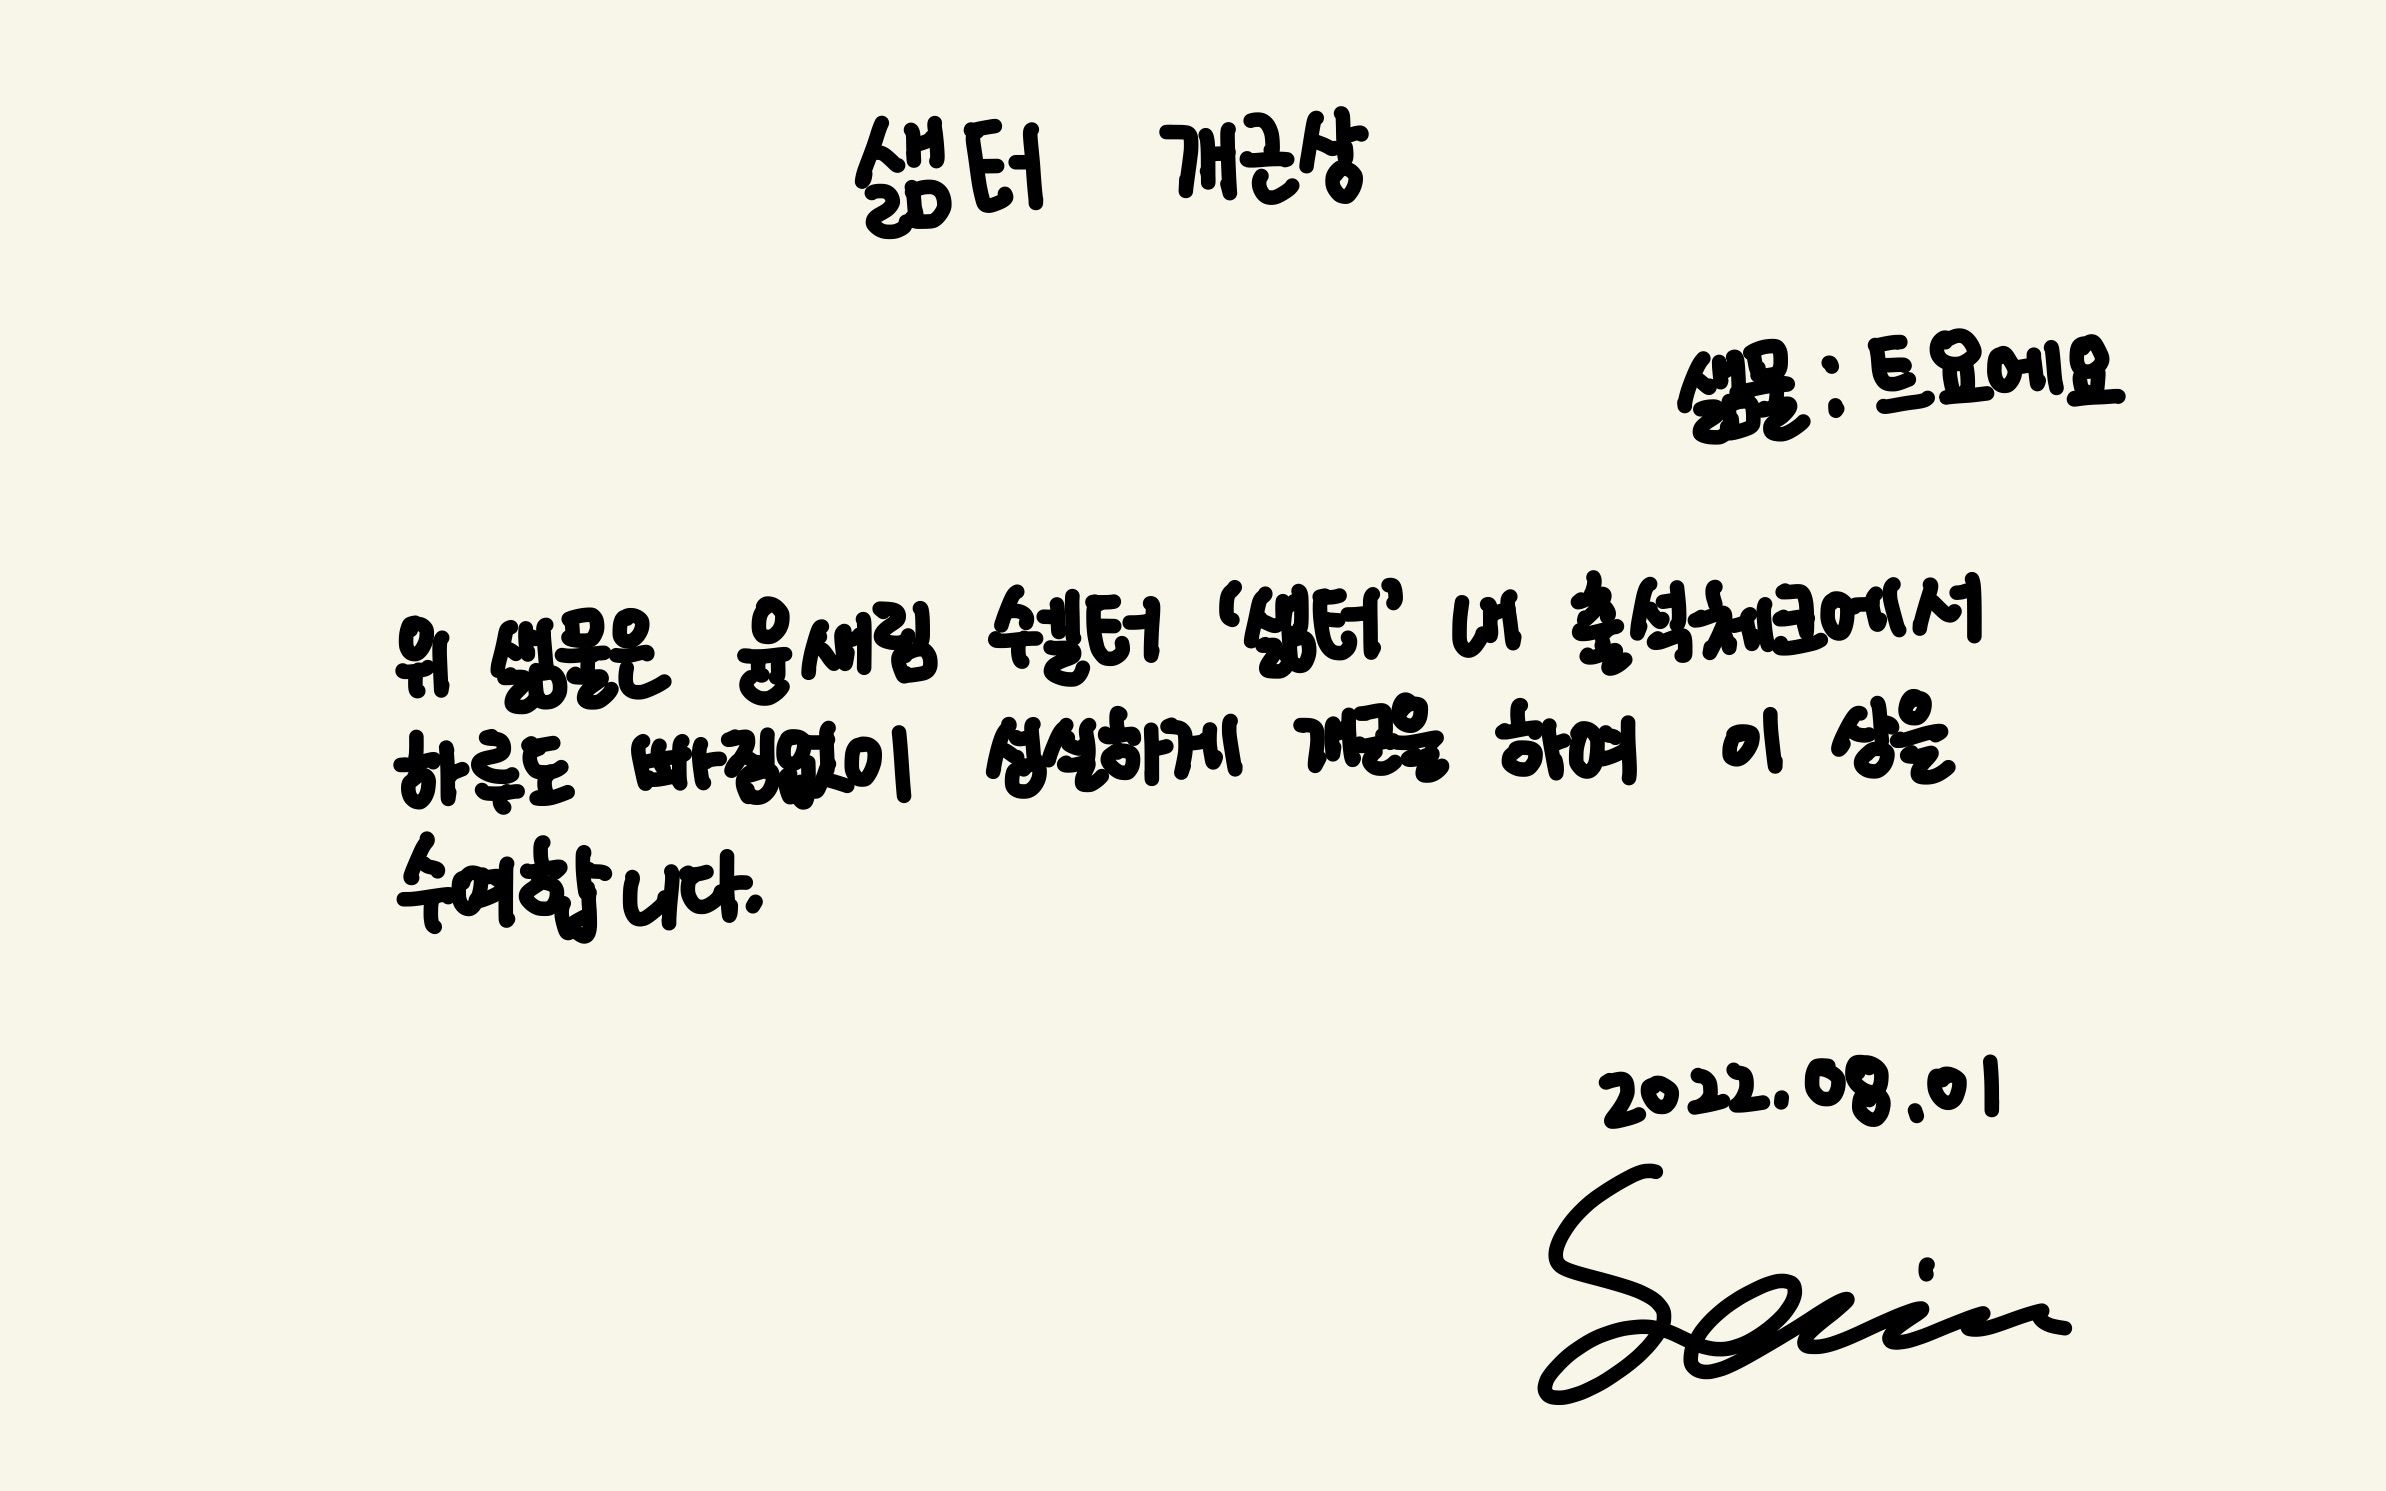 샖터 개근상
샖물 : 트요에요
위 샖물은 윤세림 수셸터 '샖터' 내 출석체크에서
하루도 빠짐없이 성실하게 개근을 하여 이 상을
수여합니다.
2022.08.01